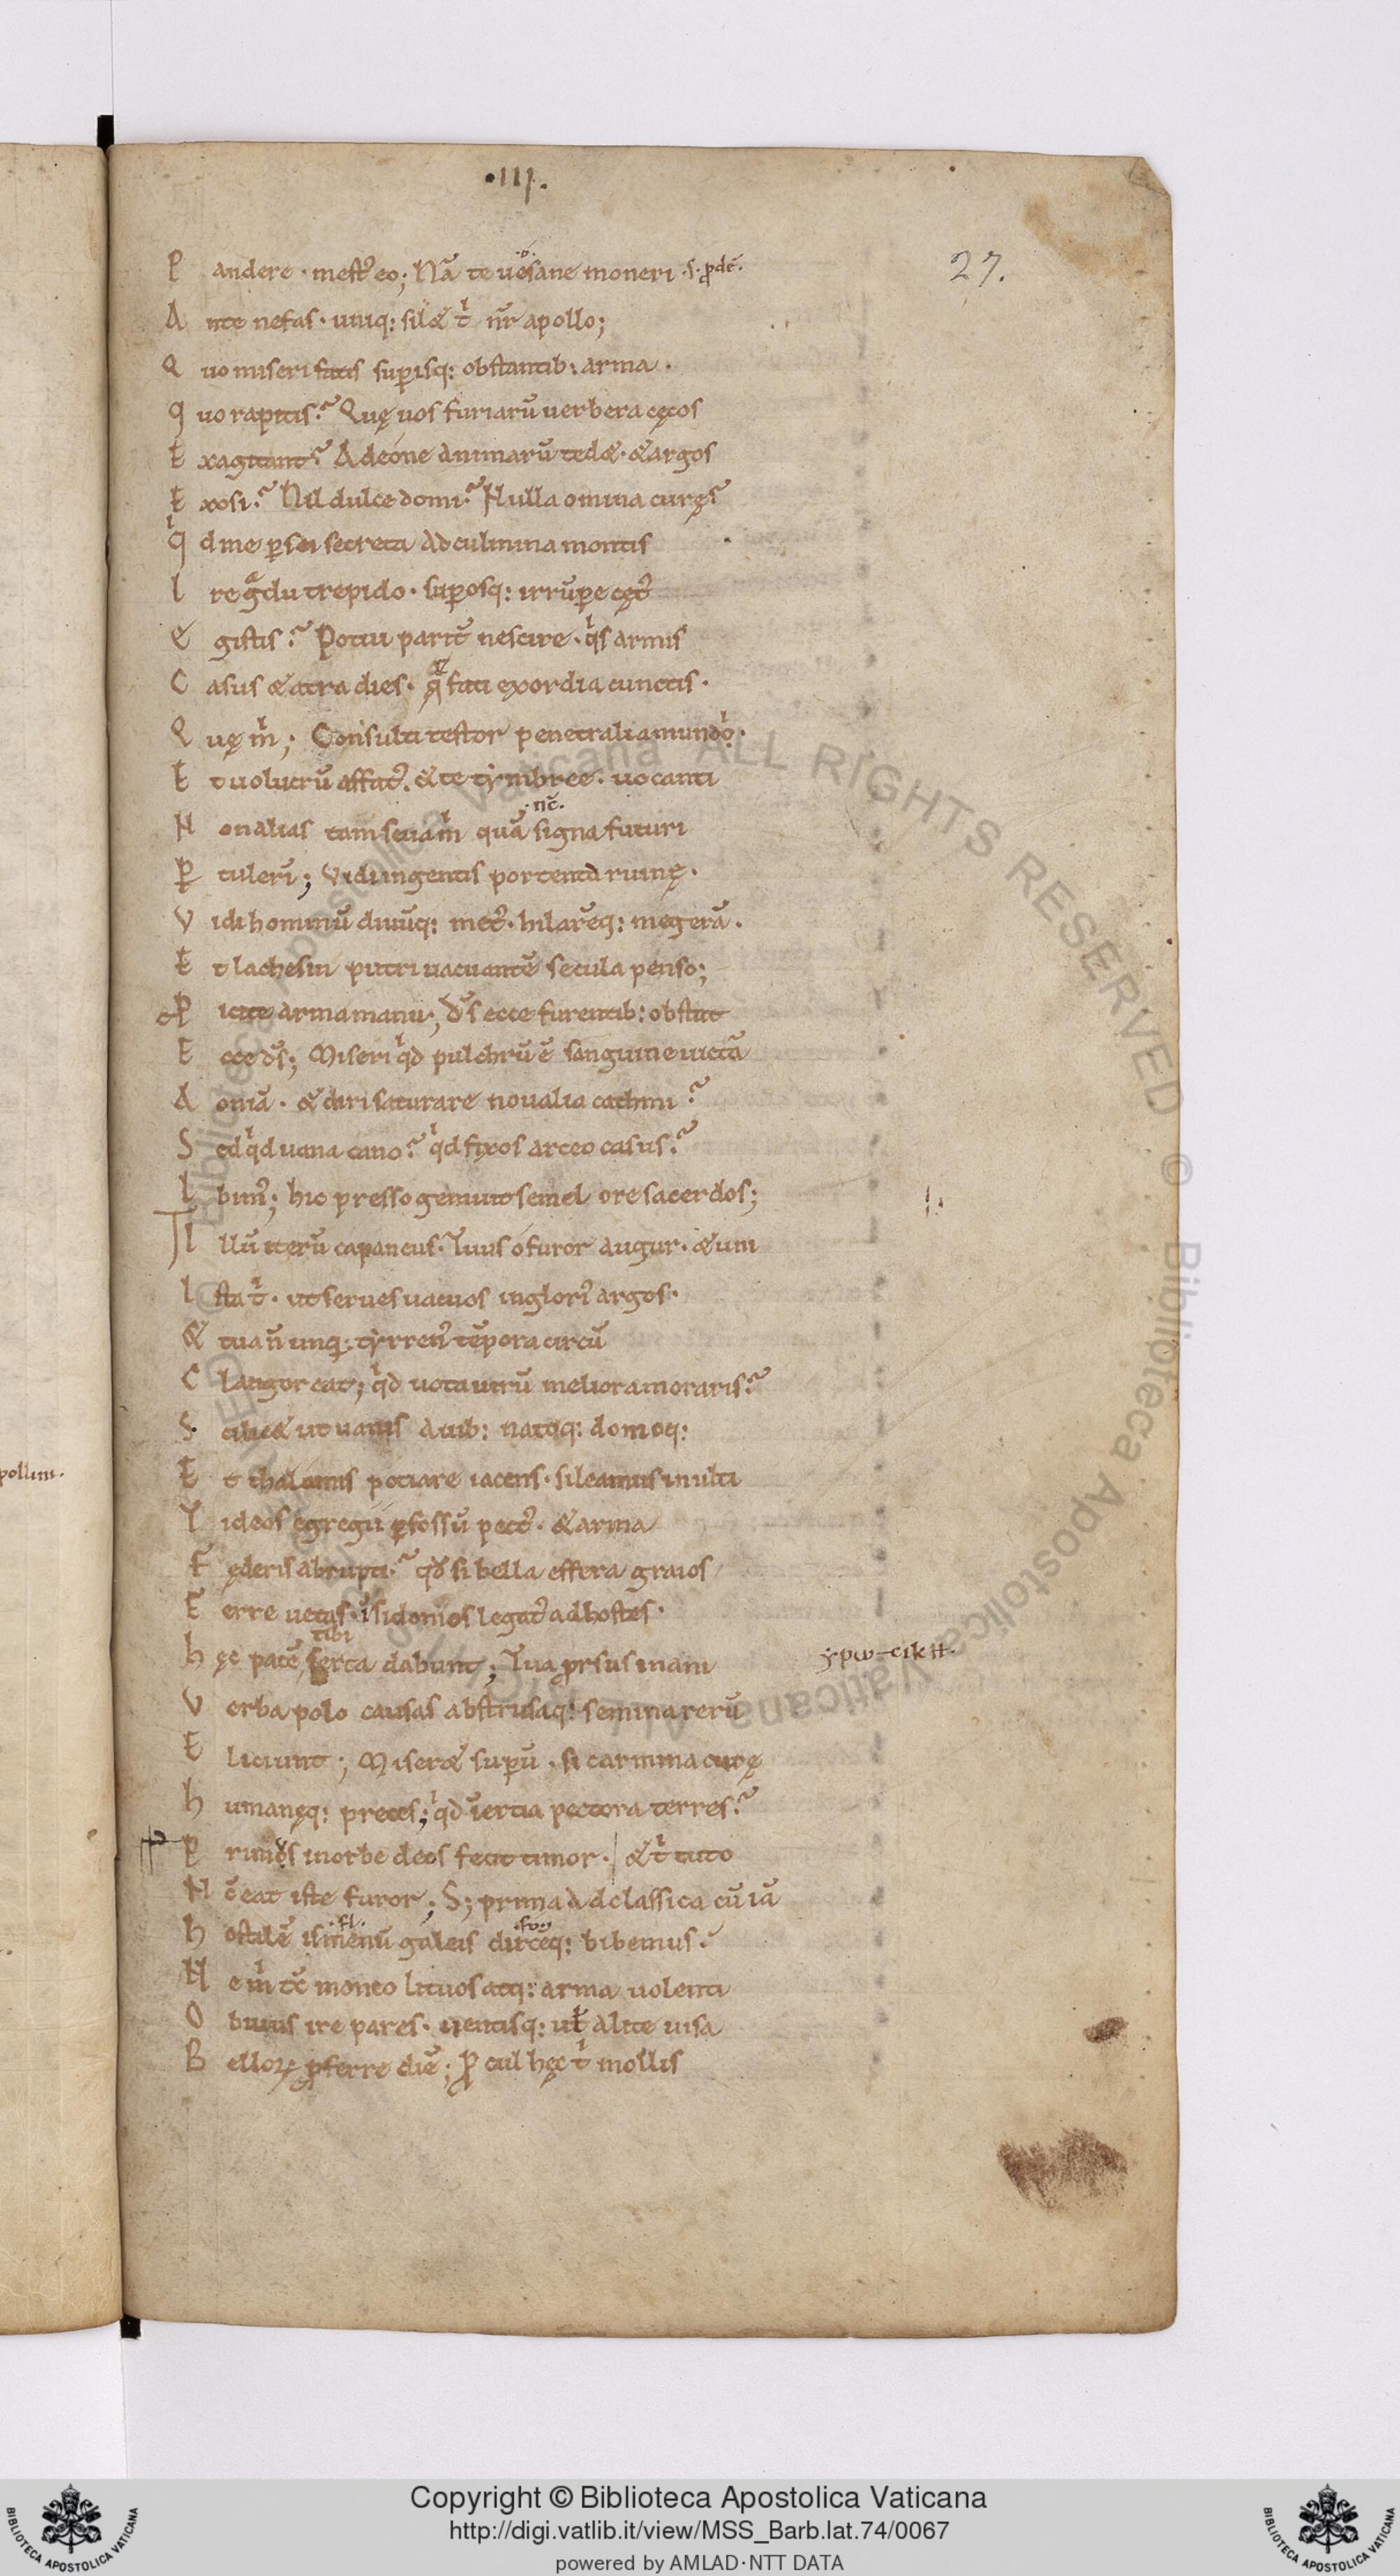 ·III·
27.
P andere · mestꝰ eo; Nā te uesane moneri ·s· p̄dc̄·
A nte nefas· uniq: silꝫ & t̾ nr̄ apollo;
Q uo miseri fatis suꝑisq: obstantib: arma ·
Q uo rapitis? Quę uos furiarū uerbera cęcos
E xagitant? Adeone animarū tedet· & argos
E xosi? Nil dulce domi? Nulla omina curę?
Q d me ꝑsei secreta ad culmina montis
I re gᵃdu trepido · suꝑosq: irrūpe cętꝰ
E gistis? Potui parit̄ nescire · qⁱs armis
C asus & atra dies · q̄ fati exordia cunctis ·
Q uę m̄; Consulti testor penetralia mundⁱ ·
E t uolucrū affatꝰ. & te tẏmbree · uocanti
·nc̄·
N on alias tam seua m̄ quā signa futuri
P tuleri; Vidi ingentis portenta ruinę ·
V idi hominū diuūq: metꝰ· hilarēq: megerā ·
E t lachesin putri uacuantē secula penso;
P icite arma manu; d̄s ecce furentib: obstat
E cce d̄s; Miseri qⁱd pulchrū ē sanguine uictā
A oniā · & diri saturare noualia cathmi?
S ed qⁱd uana cano? qⁱd fixos arceo casus?
I bimꝰ; hic presso gemuit semel ore sacerdos;
I llū iterū capaneus· Tuus o furor augur · & uni
I sta t̄ · ut serues uacuos inglori' argos·
& tua n̄ unq̄: tẏrrenꝰ tēpora circū
C langor eat; qⁱd uota uirū meliora moraris?
S cilic& ut uanis auib: natoq: domoq:
E t thalamis potiare iacens · sileamus inulti
T ideos egregii ꝑfossū pectꝰ · & arma
F ęderis abrupti? qd̄ si bella effera graios
F erre uetas· i sidonios legatꝰ ad hostes ·
tibi
H ęc pacē serta dabunt; Tua ꝓrsus inani
V erba polo causas abstrusaq: semina rerū
E liciunt; Miser& suꝑū · si carmina curę
H umanęq: preces; qⁱd īertia pectora terres?
P rimꝰ in orbe deos fecit timor · & t̄ tuto
N c̄ eat iste furor; S; prima ad classica cū iā
·fl· ·fo·
H ostilē ismenū galeis dircēq: bibemus·
N e m̄ tc̄ moneo lituos atq: arma uolenti
O buius ire pares· uentisq: uł alite uisa
B elloꝝ ꝓferre diē; ꝓcul hęc t̄ mollis
pollini·